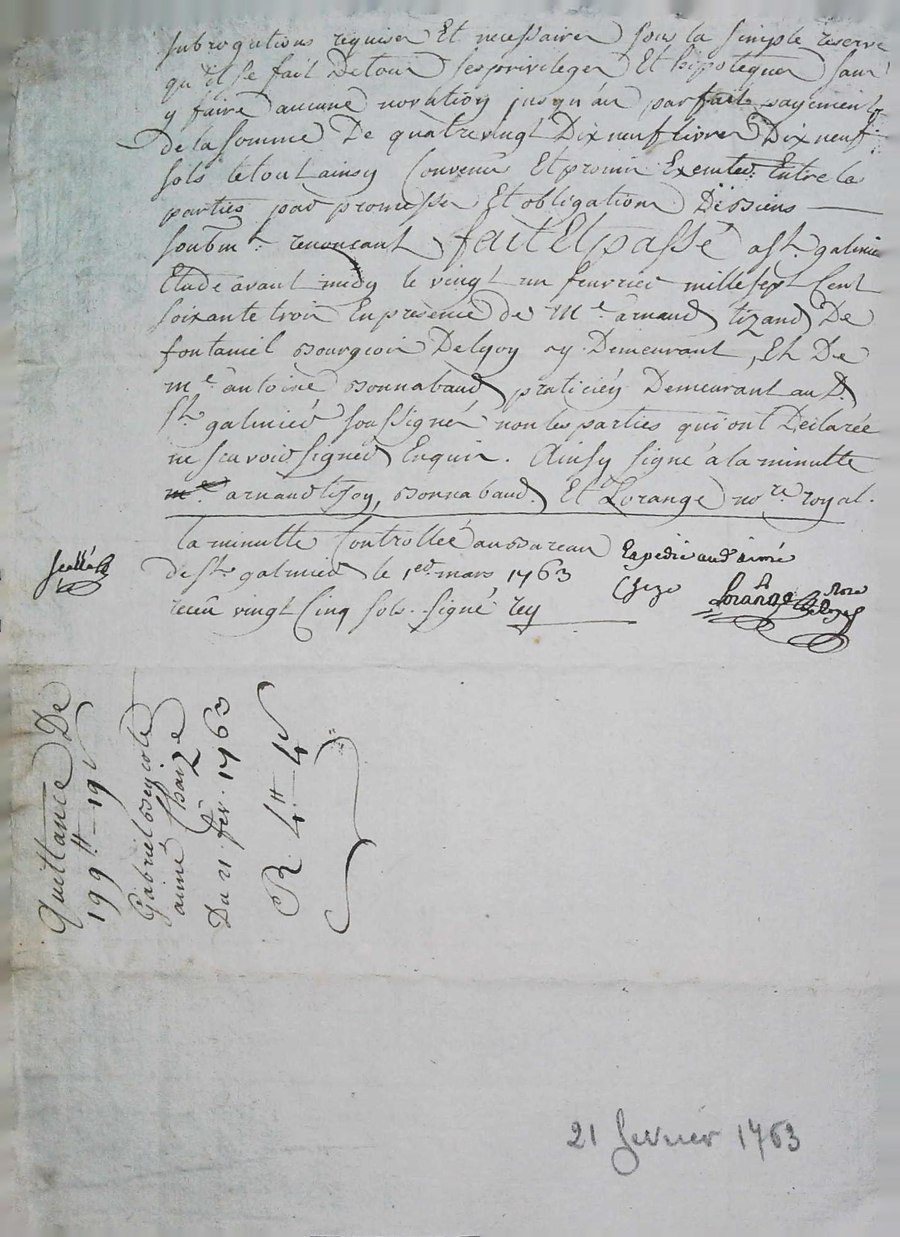 subrogations requises Et necessaires sous la simple reserve
qu'il se fait De tous ses privileges Et hipoteques sans
y faire aucune novation jusqu'au parfait payement
de la somme De quatre vingt Dix neuf livres Dix neuf
sols le tout ainsy Convenu Et promis Executer Entre les
parties par promesses Et obligations De siens
soubm.t renonçant fait Et passé a S.t galmier
Etude avant midy le vingt un fevrier mille sept Cent
soixante trois En presence de M.e arnaud tizand De
fontaniel Bourgeois De lyon y Demeurant, Et De
m.e antoine Bonnabaud praticien Demeurant au D.
S.t galmier soussignés non les parties qui ont Declarée
ne scavoir signer Enquis. Ainsy signé a la minutte
arnaud, Bonnabaud Et Lorange no.re royal.
la minutte Controllée au Bureau
De S.t galmier le 1.er mars 1763
receu vingt Cinq sols. signé rey
Expedié aud. aimé
Lorange
Scellé
Quittance De
199 tt - 19 s
Gabriel
aimé Chaize
Du 21 fev. 1763
R. 4 tt - 4 s
21 fevrier 1763